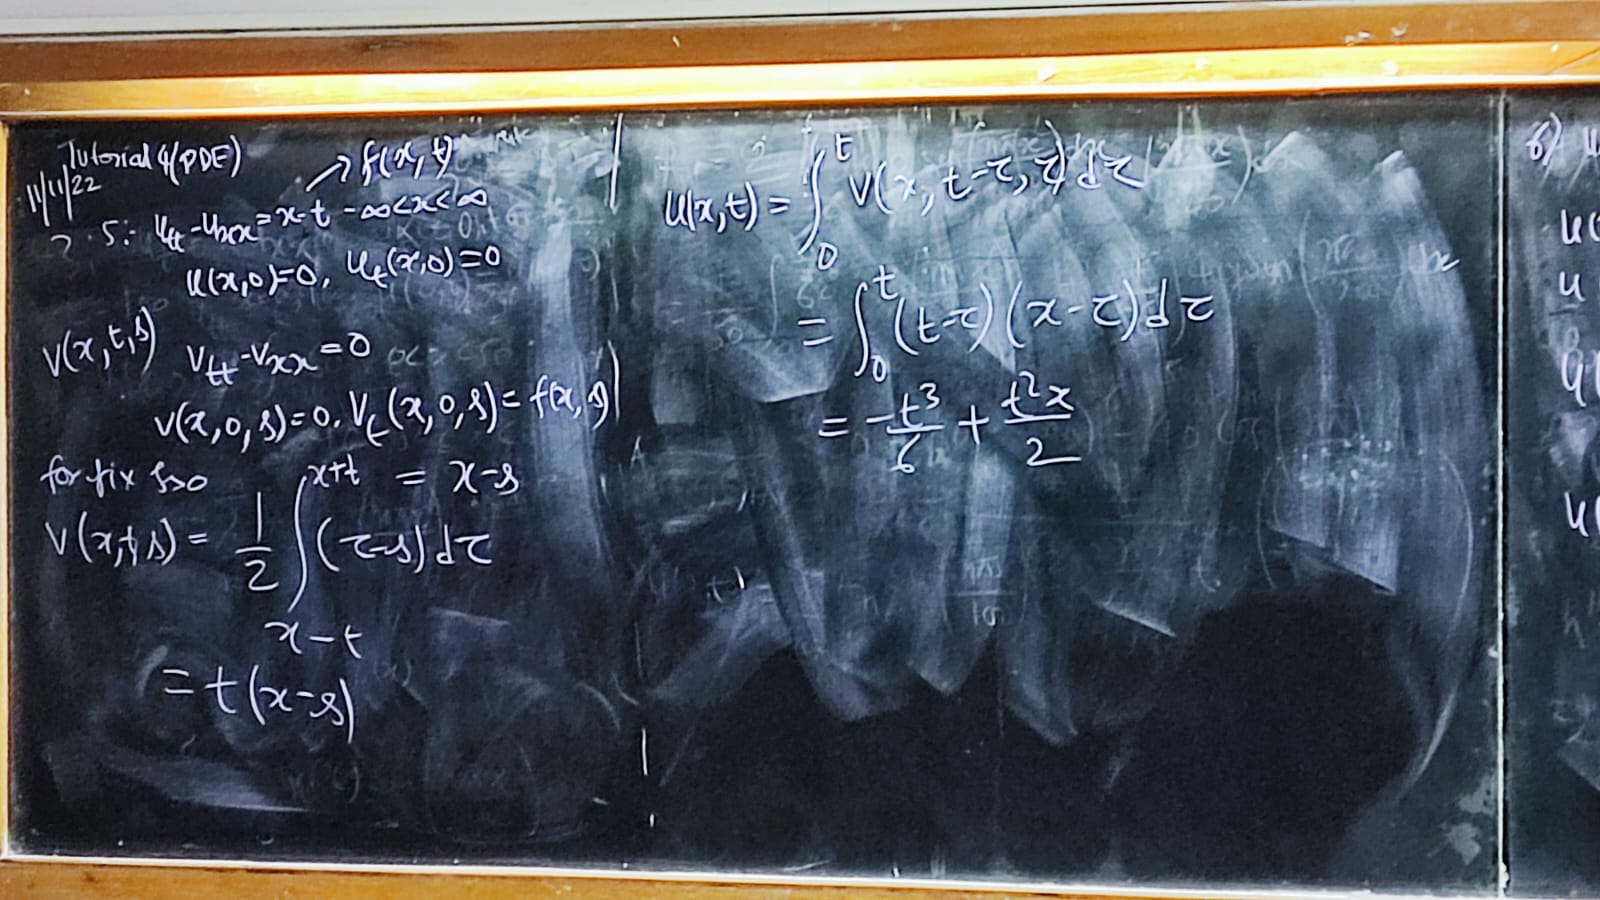 Tutorial 4(PDE)
11/11/22
→ f(x, t)
5:- u_tt - u_xx = x-t -∞<x<∞
u(x,0)=0, u_t(x,0)=0
v(x,t,s) v_tt - v_xx = 0
v(x,0,s)=0, v_t(x,0,s) = f(x,s)
= x-s
for fix s>0
v(x,t,s) = 1/2 ∫_{x-t}^{x+t} (τ-s)dτ
= t(x-s)
u(x,t) = ∫_0^t v(x, t-τ, τ)dτ
= ∫_0^t (t-τ)(x-τ)dτ
= -t³/6 + t²x/2
6) u
u(
u
u(